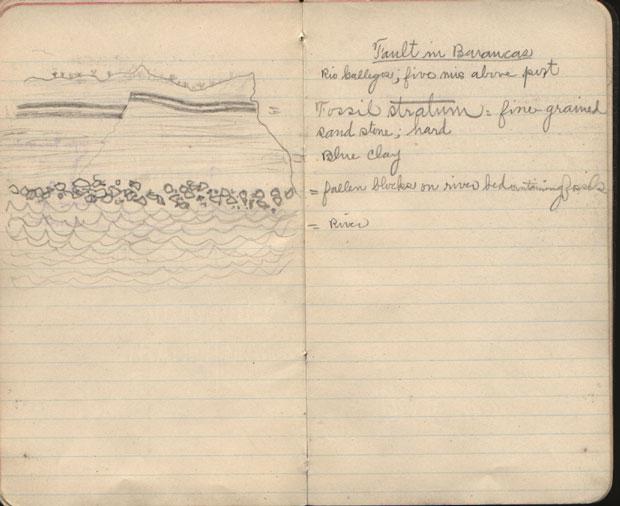 Fault in Barancas
Rio Gallegos; five mis above port
Fossil stratum = fine grained
sand stone; hard
Blue clay
= fallen blocks on river bed containing fossils
= River